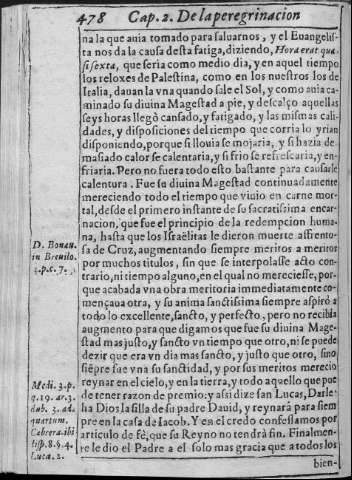 478 Cap. 2. De la peregrinacion
na la que auia tomado para saluarnos, y el Euangelis-
ta nos da la causa desta fatiga, diziendo, Hora erat qua-
si sexta, que seria como medio dia, y en aquel tiempo
los reloxes de Palestina, como en los nuestros los de
Italia, dauan la vna quando sale el Sol, y como auia ca-
minado su diuina Magestad a pie, y descalço aquellas
seys horas llegò cansado, y fatigado, y las mismas cali-
dades, y disposiciones del tiempo que corria lo yrian
disponiendo, porque si llouia se mojaria, y si hazia de-
masiado calor se calentaria, y si frio se resfriaria, y en-
friaria. Pero no fuera todo esto bastante para causarle
calentura. Fue su diuina Magestad continuadamente
mereciendo todo el tiempo que viuio en carne mor-
tal, desde el primero instante de su sacratissima encar-
nacion, que fue el principio de la redempcion huma-
na, hasta que los Israëlitas le dieron muerte afrento-
sa de Cruz, augmentando siempre meritos a meritos
por muchos titulos, sin que se interpolasse acto con-
trario, ni tiempo alguno, en el qual no mereciesse, por-
que acabada vna obra meritoria immediatamente co-
mençaua otra, y su anima sanctissima siempre aspirò a
todo lo excellente, sancto, y perfecto, pero no recibia
augmento para que digamos que fue su diuina Mage-
stad mas justo, y sancto vn tiempo que otro, ni se puede
dezir que era vn dia mas sancto, y justo que otro, sino
siẽpre fue vna su sanctidad, y por sus meritos merecio
reynar en el cielo, y en la tierra, y todo aquello que pue
de tener razon de premio: y assi dize san Lucas, Darle-
ha Dios la silla de su padre Dauid, y reynarà para siem
pre en la casa de Iacob. Y en el credo confessamos por
articulo de fè, que su Reyno no tendrà fin. Finalmen-
te le dio el Padre a el solo mas gracia que a todos los
bien-
D. Bonau.
in Breuilo.
4.p.c.7.
Medi. 3.p.
q.19.ar.3.
dub. 3. ad.
quartum.
Cabrera ibi
disp.8.§.4.
Luca.2.